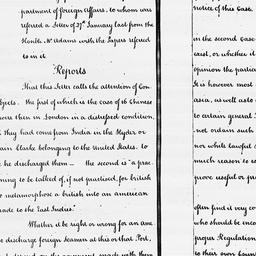 partment of foreign Affairs, to whom was
referred a Letter of 27th January last from the
Honble. Mr. Adams with the Papers referred
to in it
Reports
That this Letter calls the attention of Con-
bjects. the first of which is the case of 16 Chinese
were then in London in a distressed condition,
they had come from India in the Hyder or
ain Clarke belonging to the United States. to
he discharged them — the second is "a prac
ning to be talked of, if not practised, for british
to metamorphose a british into an american
rade to the East Indies."
Whether it be right or wrong for an Ame
discharge foreign Seamen at this or that Port,
on the agreement made with them
notice of this Case.
in the second Case
exist, or whether it
opinion the partic
It is however most
asia, as well as to
to certain general
not ordain such
nor which lawful
much reason to
prove useful or
often find it very co
who should be enco
proper Regulation
to their own Coun